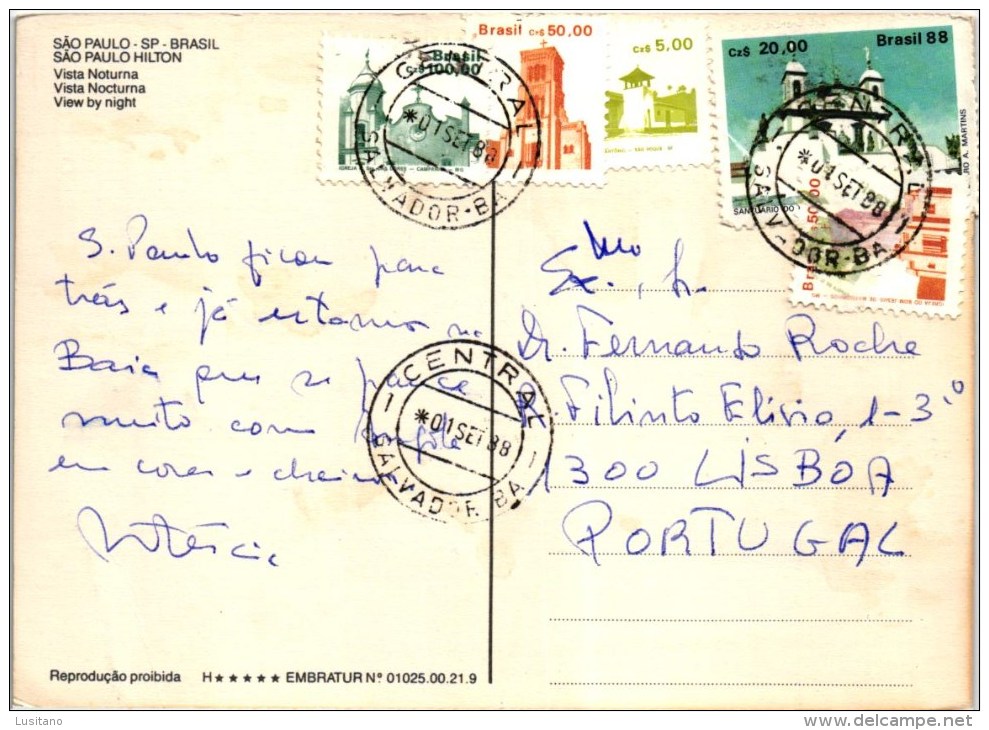 SÃO PAULO - SP - BRASIL
SÃO PAULO HILTON
Vista Noturna
Vista Nocturna
View by night
Brasil
Cz$ 100,00
Brasil Cz$ 50,00
Cz$ 5,00
Cz$ 20,00 Brasil 88
SANTUÁRIO DO
A. MARTINS
50,00
CENTRAL
*01 SET 88
SALVADOR-BA
CENTRAL
*01 SET 88
SALVADOR-BA
S. Paulo ficou para
trás e já estamos na
Baia que se parece
muito com
em cores e cheiros
CENTRAL
*01 SET 88
SALVADOR BA
Ex.mo Sr.
Dr. Fernando Rocha
R. Filinto Elísio, 1-3.º
1300 LISBOA
PORTUGAL
Reprodução proibida H ★★★★★ EMBRATUR Nº 01025.00.21.9
Lusitano
www.delcampe.net